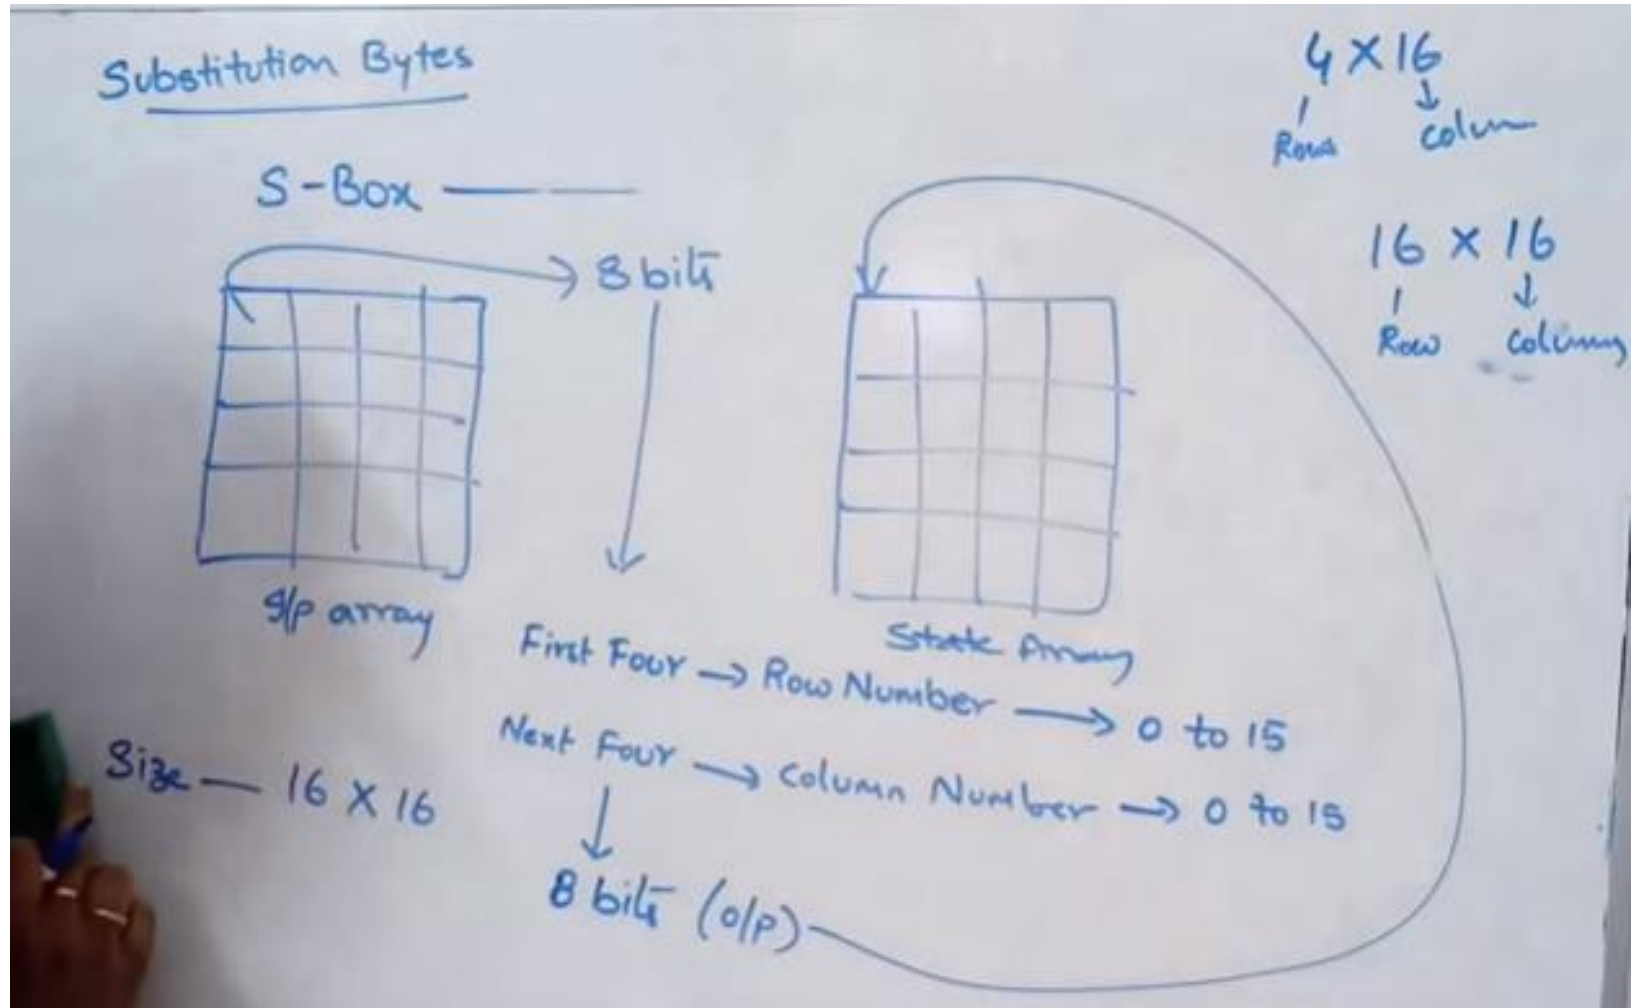 Substitution Bytes
4 X 16
Rows Colum
S-Box
16 X 16
Row Columns
8 bits
I/p array
State Array
First Four → Row Number → 0 to 15
Next Four → Column Number → 0 to 15
Size — 16 X 16
8 bits (o/p)